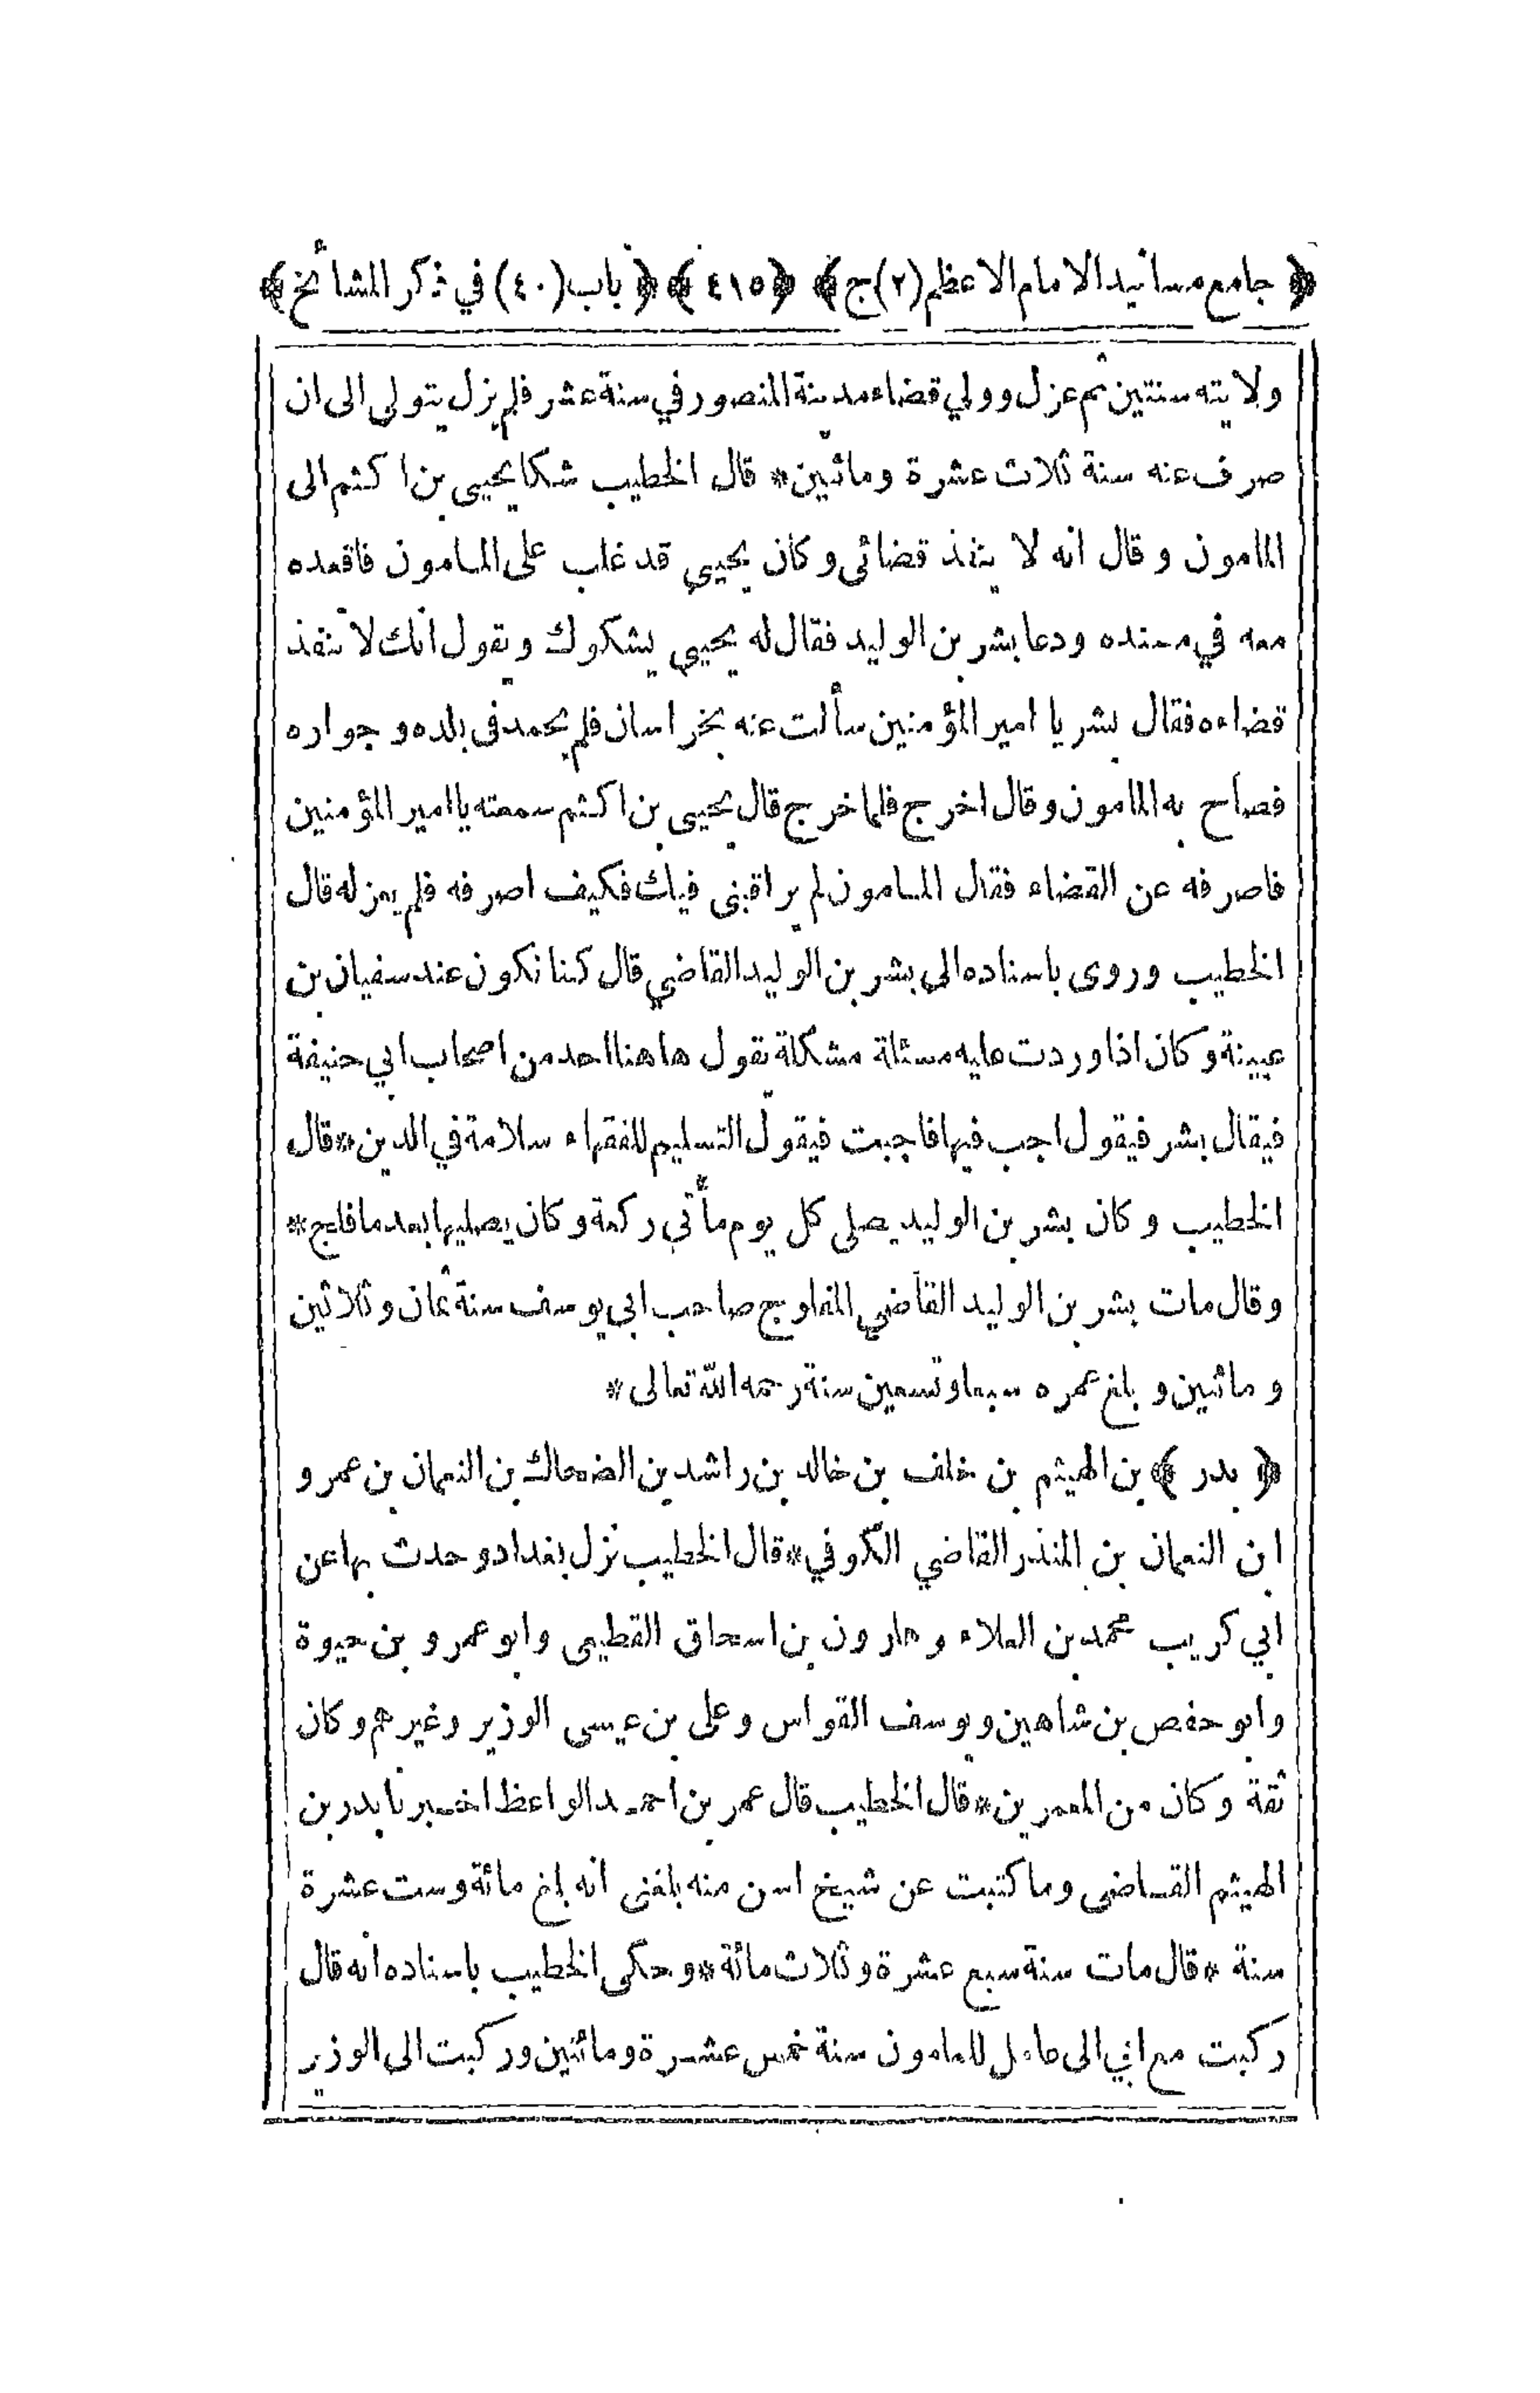 ﴿ جامع مسانيد الامام الاعظم (٢) ج ﴾ ﴿ ٤١٥ ﴾ ﴿ باب (٤٠) في ذكر المشائخ ﴾
ولايته سنتين ثم عزل وولي قضاء مدينة المنصور في سنة عشر فلم يزل يتولى الى ان
صرف عنه سنة ثلاث عشرة ومائتين * قال الخطيب شكا يحيى بن اكثم الى
المامون وقال انه لا ينفذ قضائى وكان يحيى قد غلب على المامون فاقعده
معه في مسنده ودعا بشر بن الوليد فقال له يحيى يشكوك ويقول انك لا تنفذ
قضاءه فقال بشر يا امير المؤمنين سألت عنه بخراسان فلم يحمد فى بلده وجواره
فصاح به المامون وقال اخرج فلما خرج قال يحيى بن اكثم سمعته يا امير المؤمنين
فاصرفه عن القضاء فقال المامون لم يراقبنى فيك فكيف اصرفه فلم يعزله قال
الخطيب وروى باسناده الى بشر بن الوليد القاضي قال كنا نكون عند سفيان بن
عيينة وكان اذا وردت عليه مسئلة مشكلة يقول هاهنا احد من اصحاب ابي حنيفة
فيقال بشر فيقول اجب فيها فاجبت فيقول التسليم للفقهاء سلامة في الدين * قال
الخطيب وكان بشر بن الوليد يصلى كل يوم مأتي ركعة وكان يصليها بعد ما فلج *
وقال مات بشر بن الوليد القاضي المفلوج صاحب ابي يوسف سنة ثمان وثلاثين
ومائتين وبلغ عمره سبعا وتسعين سنة رحمه الله تعالى *
﴿ بدر ﴾ بن الهيثم بن خلف بن خالد بن راشد بن الضحاك بن النعمان بن عمرو
ابن النعمان بن المنذر القاضي الكوفي * قال الخطيب نزل بغداد وحدث بها عن
ابي كريب محمد بن العلاء وهارون بن اسحاق القطيعى وابو عمرو بن حيوة
وابو حفص بن شاهين ويوسف القواس وعلى بن عيسى الوزير وغيرهم وكان
ثقة وكان من المعمرين * قال الخطيب قال عمر بن احمد الواعظ اخبرنا بدر بن
الهيثم القاضى وما كتبت عن شيخ اسن منه بلغنى انه بلغ مائة وست عشرة
سنة * قال مات سنة سبع عشرة وثلاث مائة * وحكى الخطيب باسناده انه قال
ركبت مع ابي الى عامل للمامون سنة خمس عشرة ومائتين وركبت الى الوزير